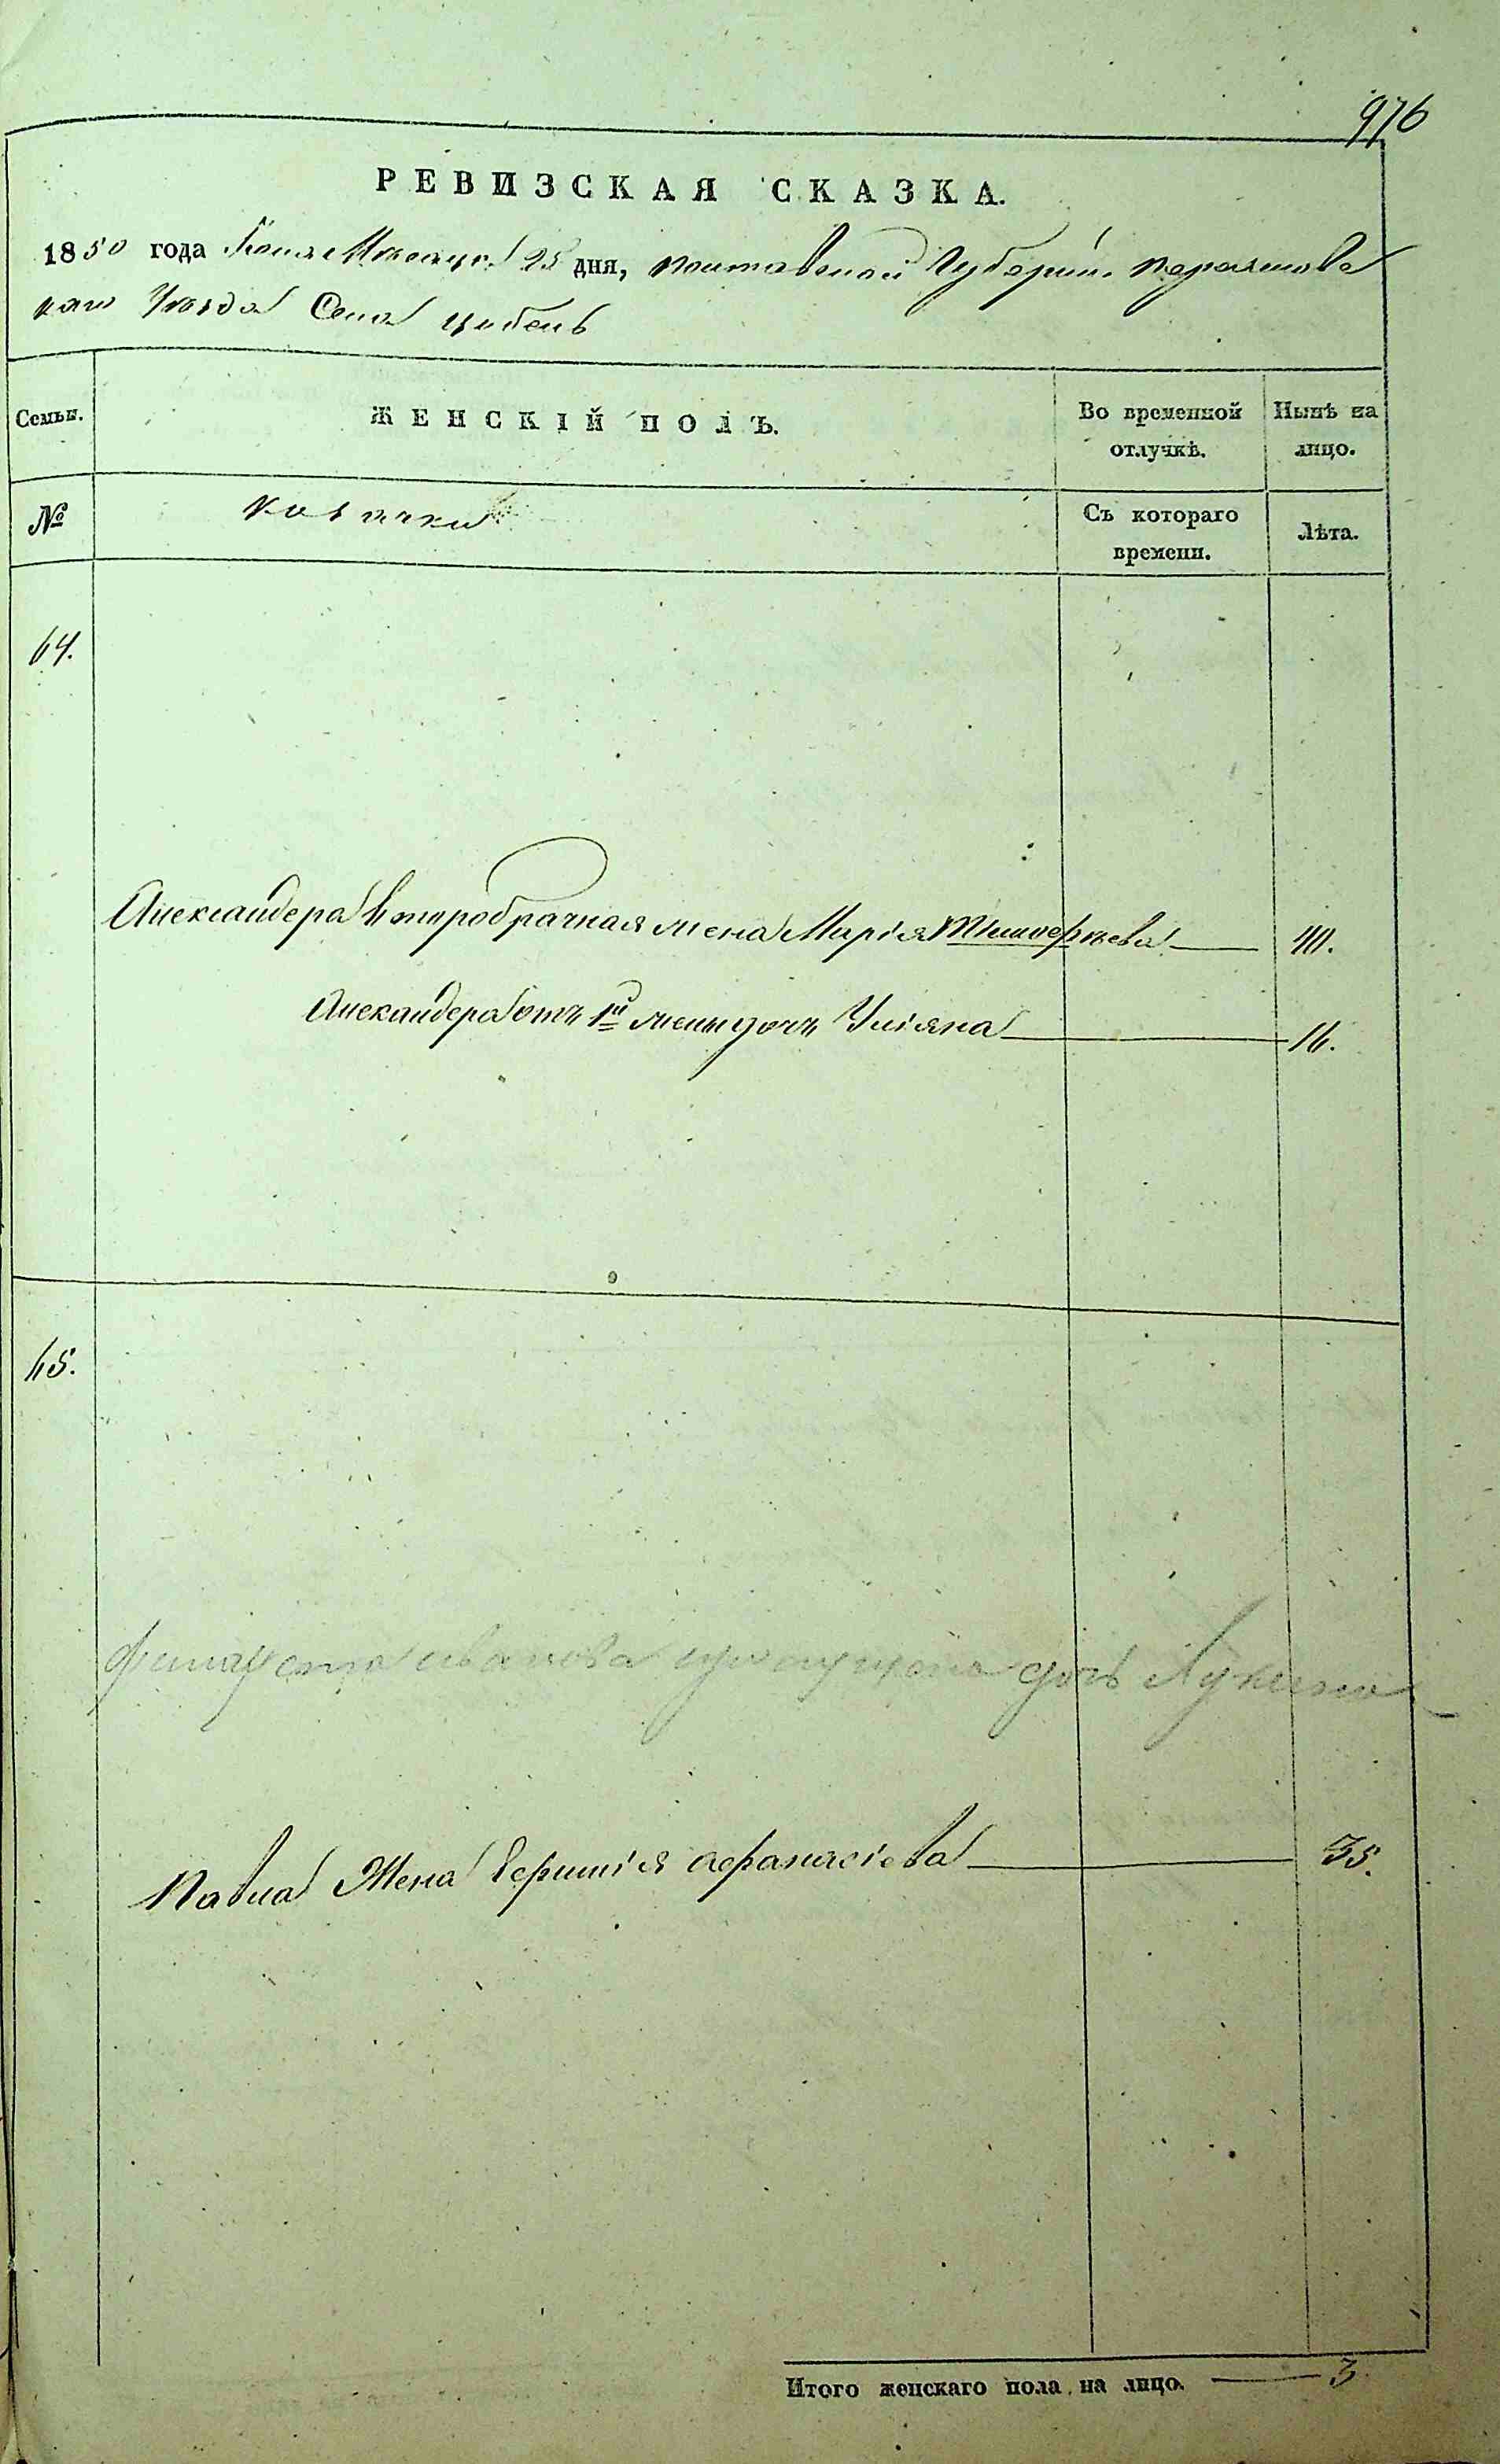 976
РЕВИЗСКАЯ СКАЗКА.
1850 года Июня Месяца 25 дня, Полтавской Губернии Переяслов
каго Уезда Села Цибель
Семьи. ЖЕНСКІЙ ПОЛЪ. Во временной отлучкѣ. Нынѣ на лицо.
№ козачки Съ котораго времени. Лѣта.
64.
Александера второбрачная жена Марія Тимоеѣева 40.
Александера отъ 1й жены дочъ Уліяна 16.
65.
Ивановна пропущена дочь
Павла Жена Ефимія Афанасіева 35.
Итого женскаго пола на лицо. 3